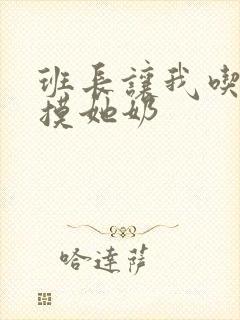 班長讓我喫
摸她奶
哈達薩